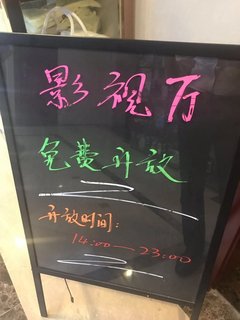 影视厅
免费开放
开放时间:
14:00—23:00